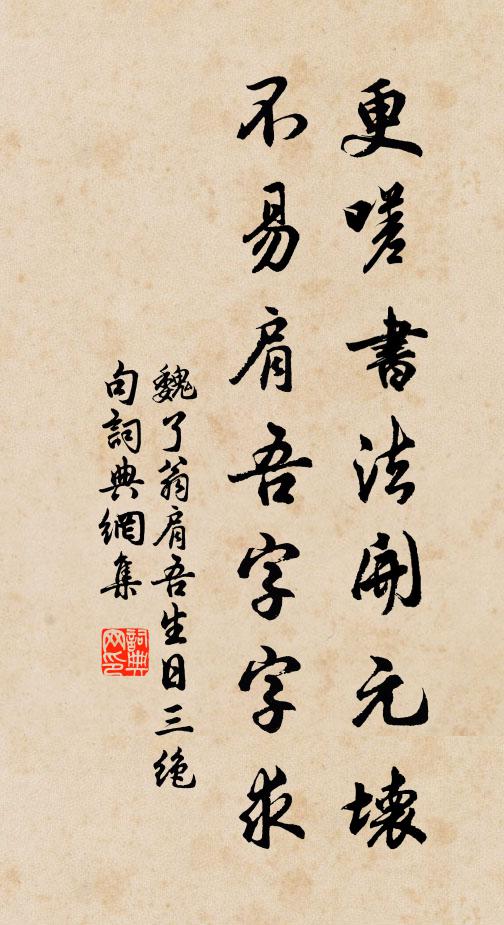 更嗟書法開元壞
不易肩吾字字求
魏了翁肩吾生日三絶
句詞典網集
詞典
网印